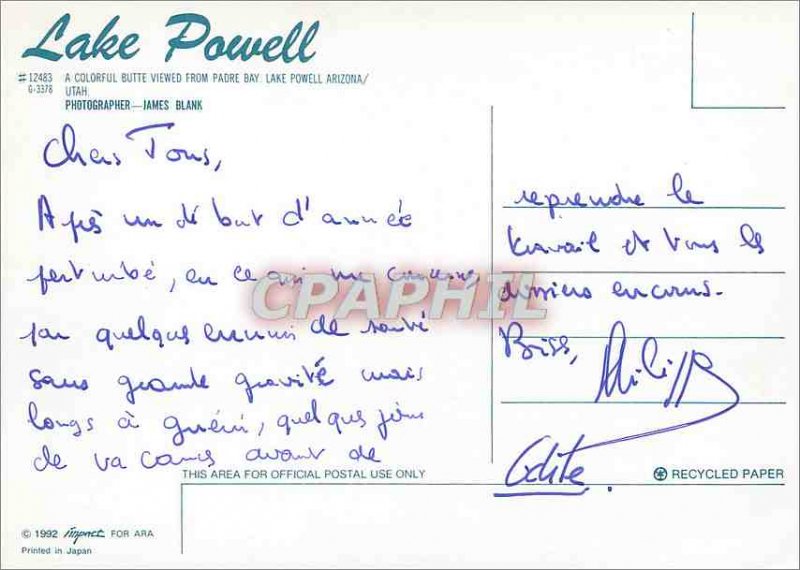 Lake Powell
# 12483 A COLORFUL BUTTE VIEWED FROM PADRE BAY. LAKE POWELL ARIZONA/
G-3378 UTAH.
PHOTOGRAPHER—JAMES BLANK
Chers Tous,
Après un début d'année
perturbé, en ce qui me concerne,
par quelques ennuis de santé
sans grande gravité mais
longs à guérir, quelques jours
de vacances avant de
reprendre le
travail et tous les
dossiers en cours.
Bises, Philippe
Odite.
CPAPHIL
THIS AREA FOR OFFICIAL POSTAL USE ONLY
RECYCLED PAPER
© 1992 impact FOR ARA
Printed in Japan